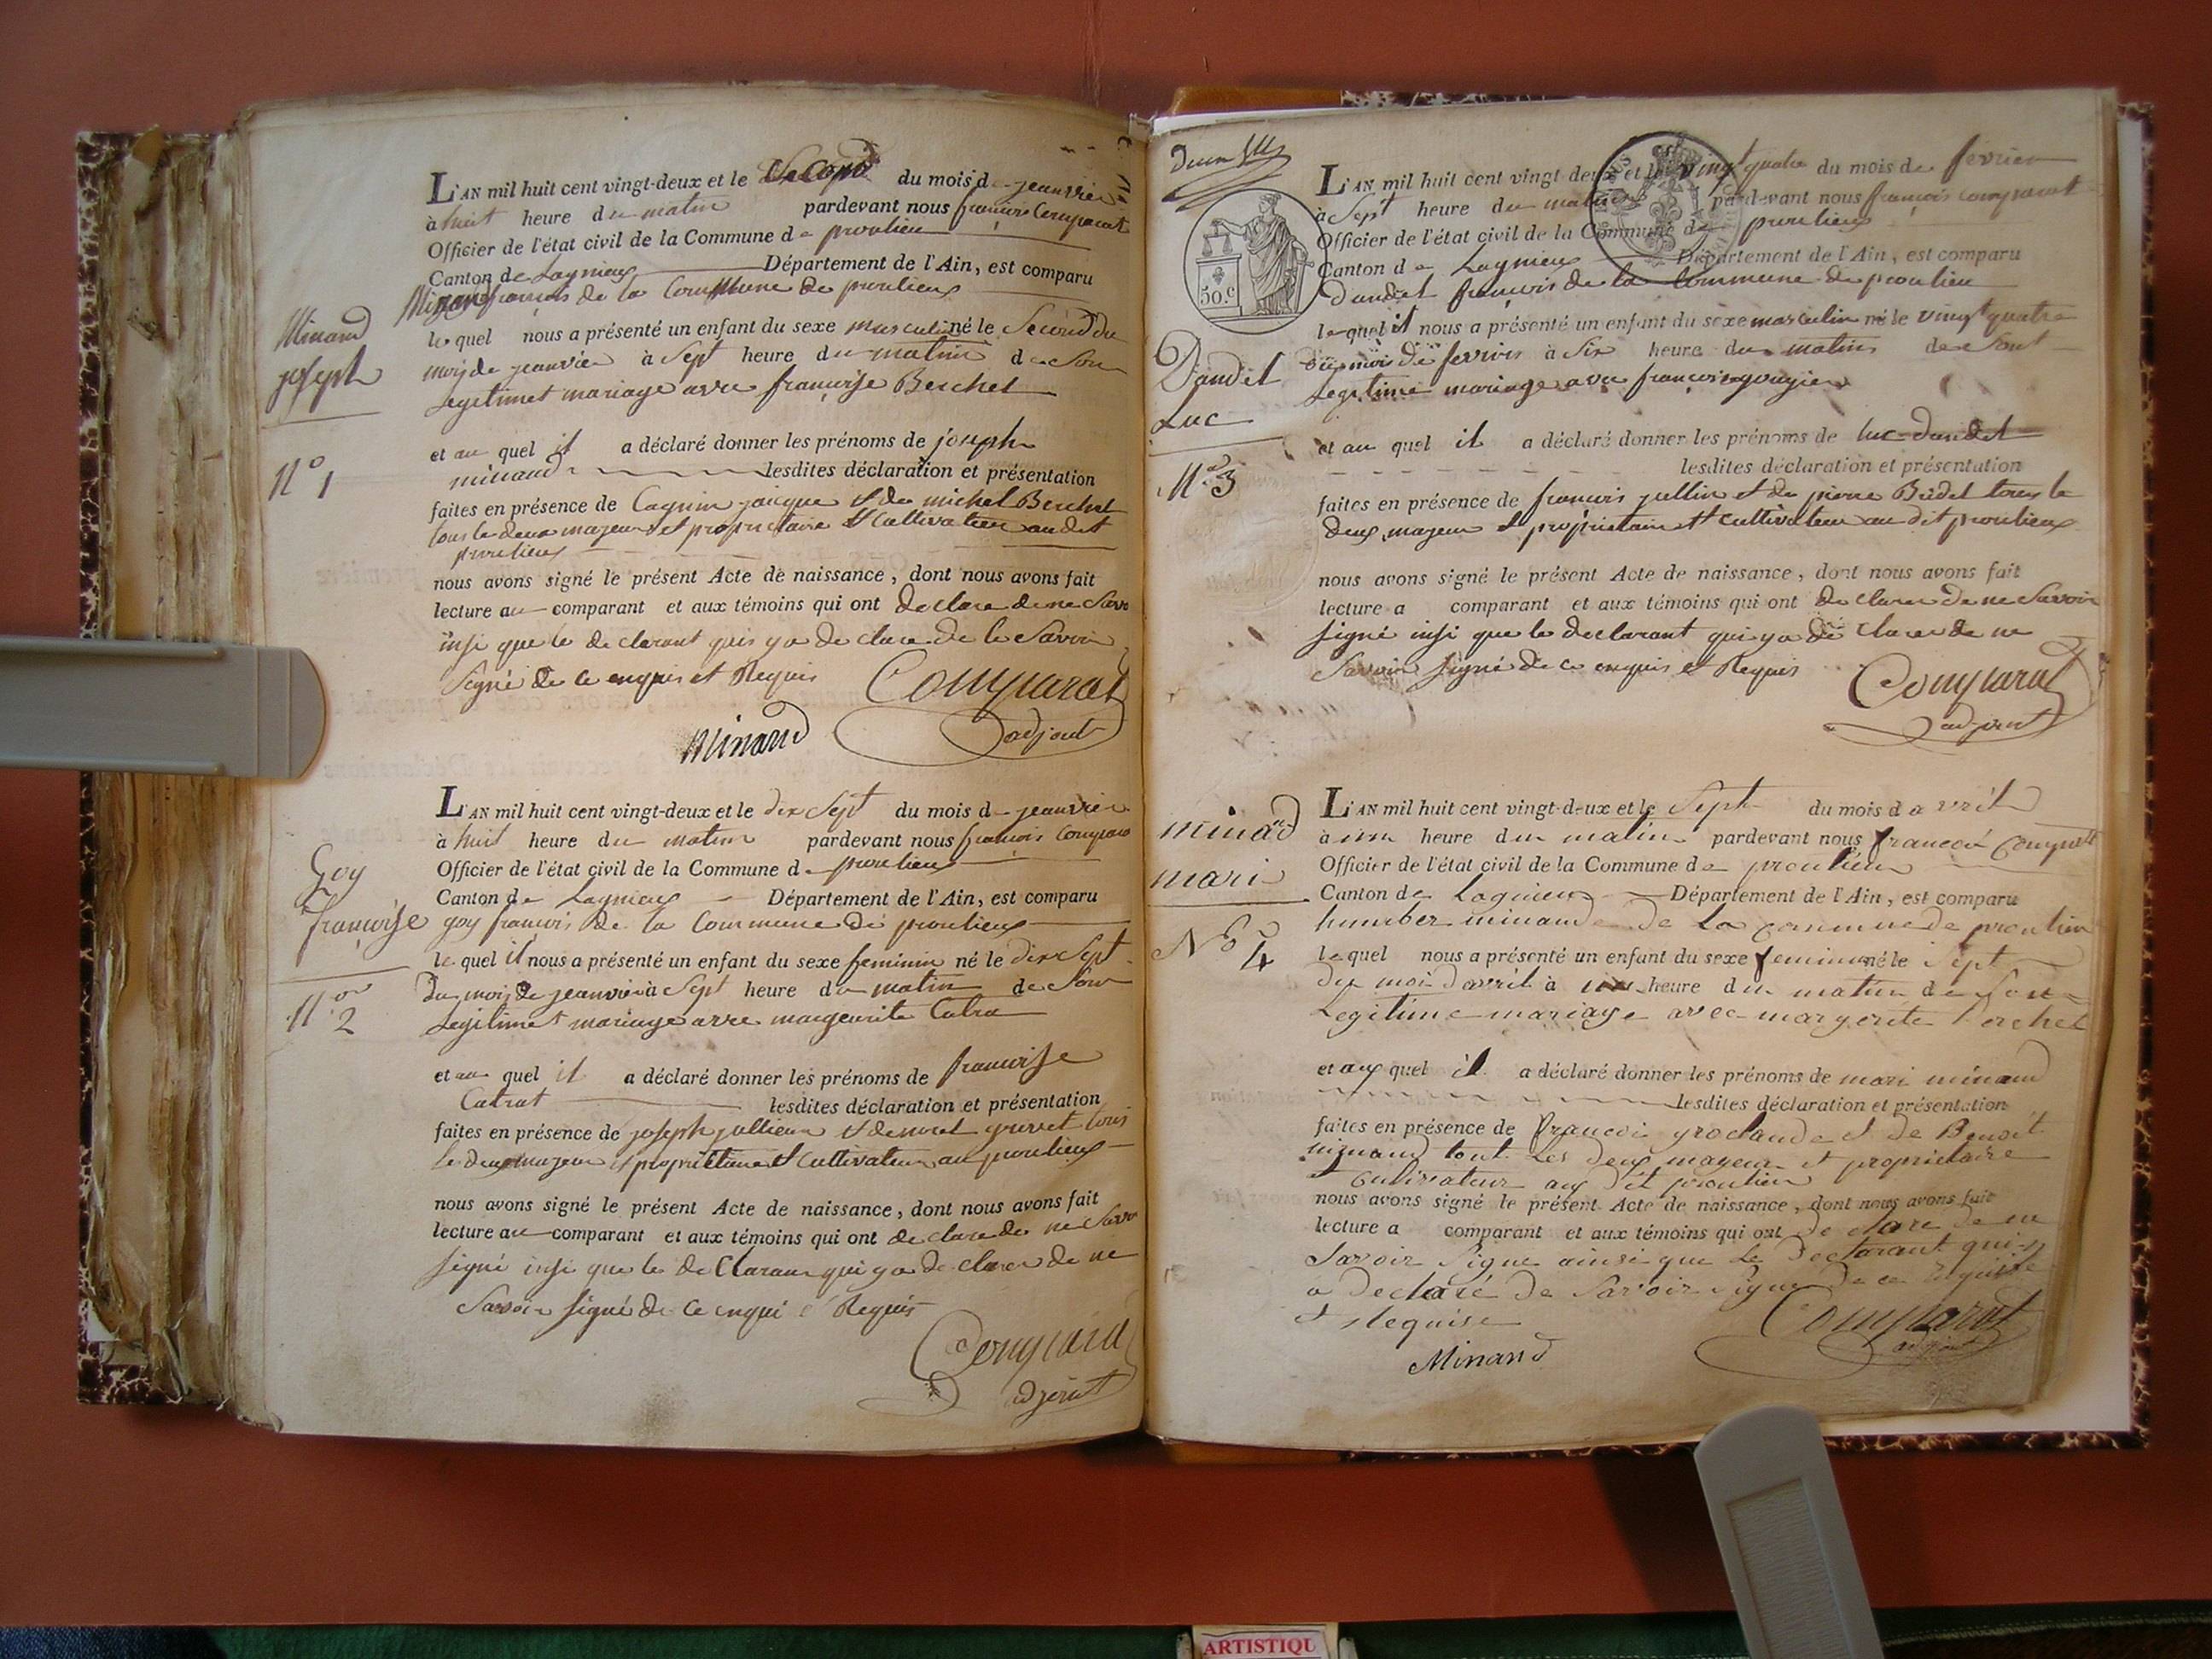 L'AN mil huit cent vingt-deux et le Second du mois de jeanvier
à huit heure du matin pardevant nous françois Comparat
Officier de l'état civil de la Commune de proulieu
Canton de Lagnieux Département de l'Ain, est comparu
Minand françois de la Commune de proulieux
Minand
joseph
N° 1
le quel nous a présenté un enfant du sexe masculin né le Second du
mois de jeanvier à Sept heure du matin de Son
Legetimet mariage avec françoise Berchet
et au quel il a déclaré donner les prénoms de joseph
minand lesdites déclaration et présentation
faites en présence de Cagnin jacque et de michel Berchet
tous le deux majeur et proprietaire et Cultivateur audit
proulieux
nous avons signé le présent Acte de naissance, dont nous avons fait
lecture au comparant et aux témoins qui ont declare de ne Savo
insi que le declarant qui y a declare de le Savoir
Signé de ce enquis et Requis
Comparat
adjoint
Minand
L'AN mil huit cent vingt-deux et le dix Sept du mois de jeanvier
à huit heure du matin pardevant nous françois Comparat
Officier de l'état civil de la Commune de proulieux
Canton de Lagnieux Département de l'Ain, est comparu
Goy
françoise
N° 2
goy françois de la Commune de proulieux
le quel il nous a présenté un enfant du sexe feminin né le dix Sept
du mois de jeanvier à Sept heure du matin de Son
Legitimet mariage avec margeurite Catra
et au quel il a déclaré donner les prénoms de françoise
Catrat lesdites déclaration et présentation
faites en présence de joseph jullien et de grevet tous
le deux majeur et propriettaire et Cultivateur au proulieux
nous avons signé le présent Acte de naissance, dont nous avons fait
lecture au comparant et aux témoins qui ont declare de ne Savo
signé insi que le de Claran qui y a declarer de ne
Savoir signé de Ce enqui et Requis
Comparat
adjoint
50.C
L'AN mil huit cent vingt-deux et le vingt quatre du mois de fevrier
à Sept heure du matin pardevant nous françois comparat
Officier de l'état civil de la Commune de proulieux
Canton de Lagnieux Département de l'Ain, est comparu
Dandet françois de la Commune de proulieu
Dandet
Luc
N° 3
le quel il nous a présenté un enfant du sexe masculin né le vingt quatre
du mois de fevrier à Six heure du matin de Sont
Legitime mariage avec françoise
et au quel il a déclaré donner les prénoms de luc dandet
lesdites déclaration et présentation
faites en présence de françois jullin et de pierre Bridet tous le
deux majeur et propriettaire et cultivateur au dit proulieux
nous avons signé le présent Acte de naissance, dont nous avons fait
lecture a comparant et aux témoins qui ont declarer de ne Savoir
signé insi que le declarant qui y a de clarer de ne
Savoir signé de ce enquis et Requis
Comparat
adjoint
L'AN mil huit cent vingt-deux et le Sept du mois d avril
à une heure du matin pardevant nous francoi Comparat
Officier de l'état civil de la Commune de proulieu
Canton de Lagnieu Département de l'Ain, est comparu
minad
mari
N° 4
humber minand de La commune de proulieu
le quel nous a présenté un enfant du sexe feminin né le Sept
du moi davril à une heure du matin de Son
Legitime mariage avec margerite Berchet
et aux quel il a déclaré donner les prénoms de mari minand
lesdites déclaration et présentation
faites en présence de francoi et de Benoit
minand tout Les deux mageur et proprietaire
et Cultivateur aux dit proulieu
nous avons signé le présent Acte de naissance, dont nous avons fait
lecture a comparant et aux témoins qui ont declare de ne
Savoir Signe ainsi que Le Declarant qui y
a Declaré De Savoir Signe De ce Enquise
et Requise
Comparat
adjoint
Minand
ARTISTIQU